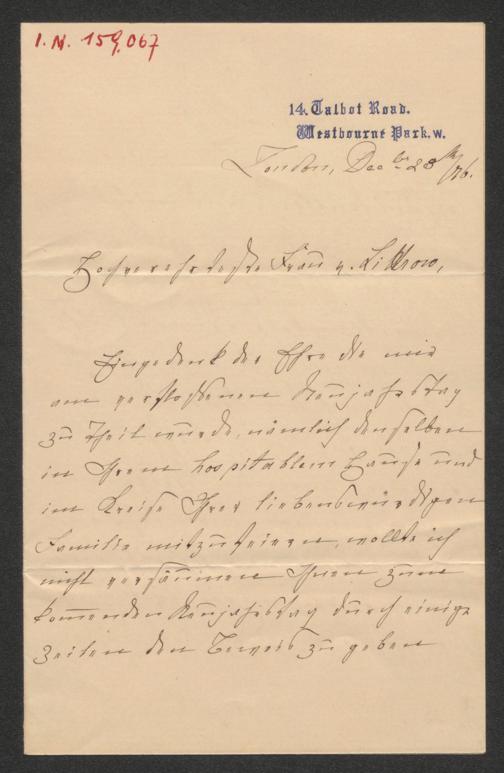 I. N. 159.067
14. Talbot Road.
Westbourne Park. W.
London, Decbr 28th/76.
Hochverehrteste Frau v. Littrow,
Eingedenk der Ehre die mir
am verflossenen Neujahrstag
zu Theil wurde, nämlich denselben
in Ihrem hospitablem Hause und
im Kreise Ihrer liebenswürdigen
Familie mitzufeiern, wollte ich
nicht versäumen Ihnen zum
kommenden Neujahrstag durch einige
Zeilen den Beweis zu geben